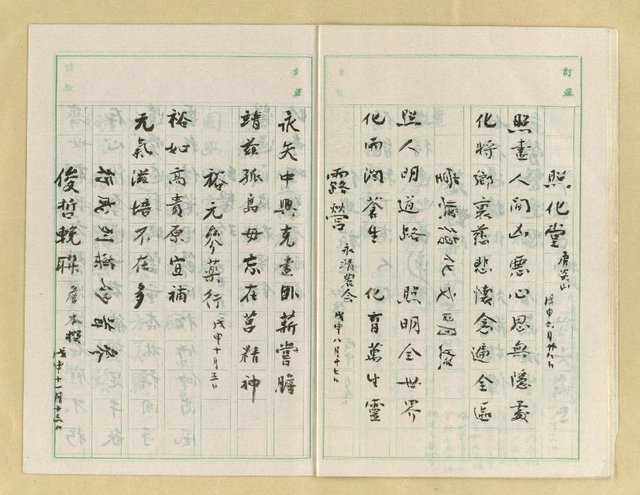 照化堂
戊申六月廿九日
照盡人間凶惡心思無隱處
化將鄉裏慈悲懷念遍全區
化成
照人明道路　照明全世界
化雨潤蒼生　化育萬生靈
露營　戊申八月十七日
永矢中興克盡臥薪嘗膽
靖茲孤島毋忘在莒精神
裕元參藥行　戊申十月五日
裕如高貴原宜補
元氣滋培不在多
俊哲輓聯　戊申十一月十三日